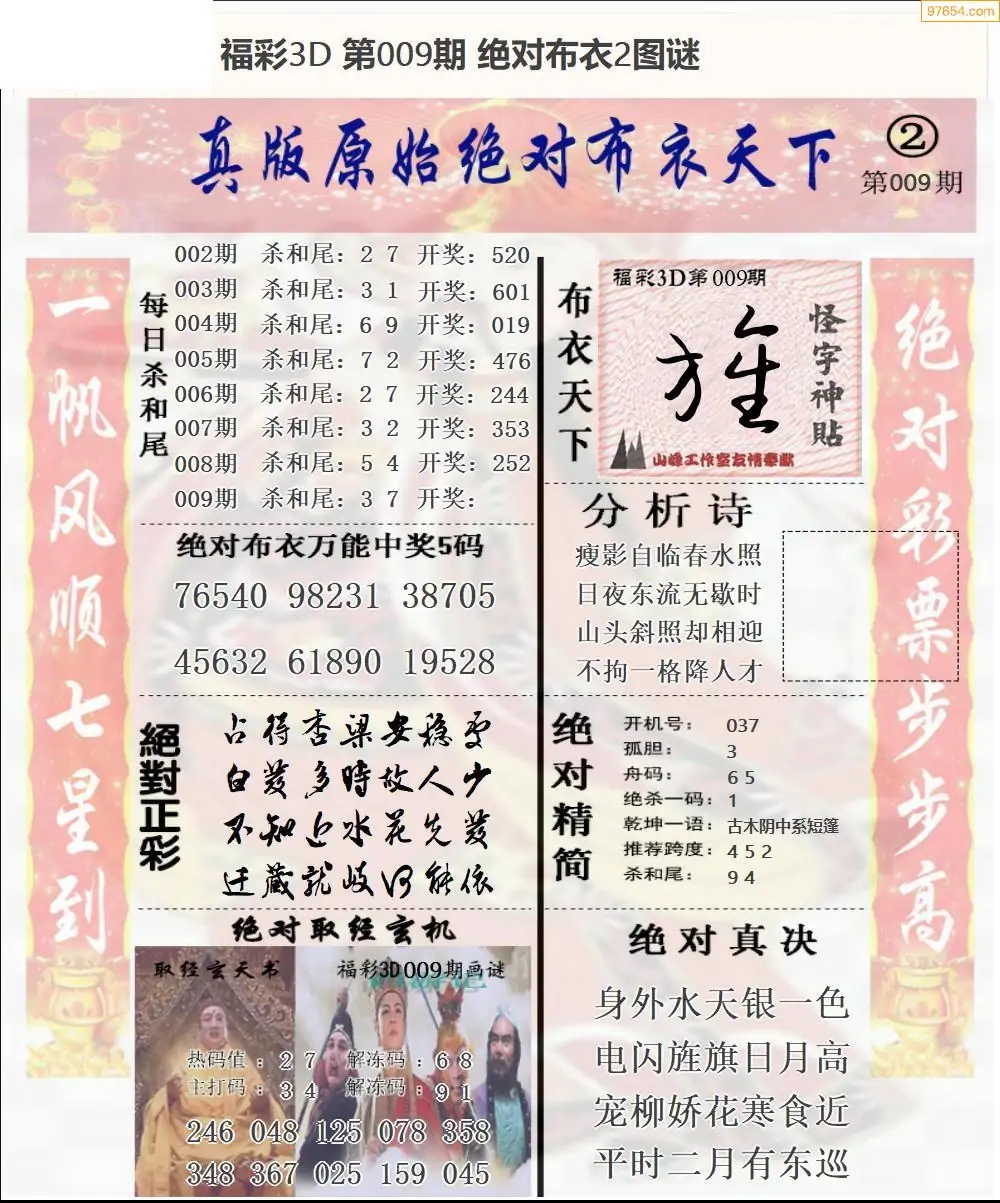 97654.com
福彩3D 第009期 绝对布衣2图谜
真版原始绝对布衣天下
②
第009期
一帆风顺七星到
每日杀和尾
002期 杀和尾：2 7 开奖：520
003期 杀和尾：3 1 开奖：601
004期 杀和尾：6 9 开奖：019
005期 杀和尾：7 2 开奖：476
006期 杀和尾：2 7 开奖：244
007期 杀和尾：3 2 开奖：353
008期 杀和尾：5 4 开奖：252
009期 杀和尾：3 7 开奖：
绝对布衣万能中奖5码
76540 98231 38705
45632 61890 19528
絕對正彩
占得杏梁安稳处
白发多時故人少
不知近水花先发
迁藏就岐何能依
绝对取经玄机
取经玄天书
福彩3D009期画谜
热码值：2 7 解冻码：6 8
主打码：3 4 解冻码：9 1
246 048 125 078 358
348 367 025 159 045
布衣天下
福彩3D第009期
怪字神貼
山峰工作室友情奉献
分析诗
瘦影自临春水照
日夜东流无歇时
山头斜照却相迎
不拘一格降人才
绝对精简
开机号：037
孤胆：3
舟码：6 5
绝杀一码：1
乾坤一语：古木阴中系短篷
推荐跨度：4 5 2
杀和尾：9 4
绝对真决
身外水天银一色
电闪旌旗日月高
宠柳娇花寒食近
平时二月有东巡
绝对彩票步步高